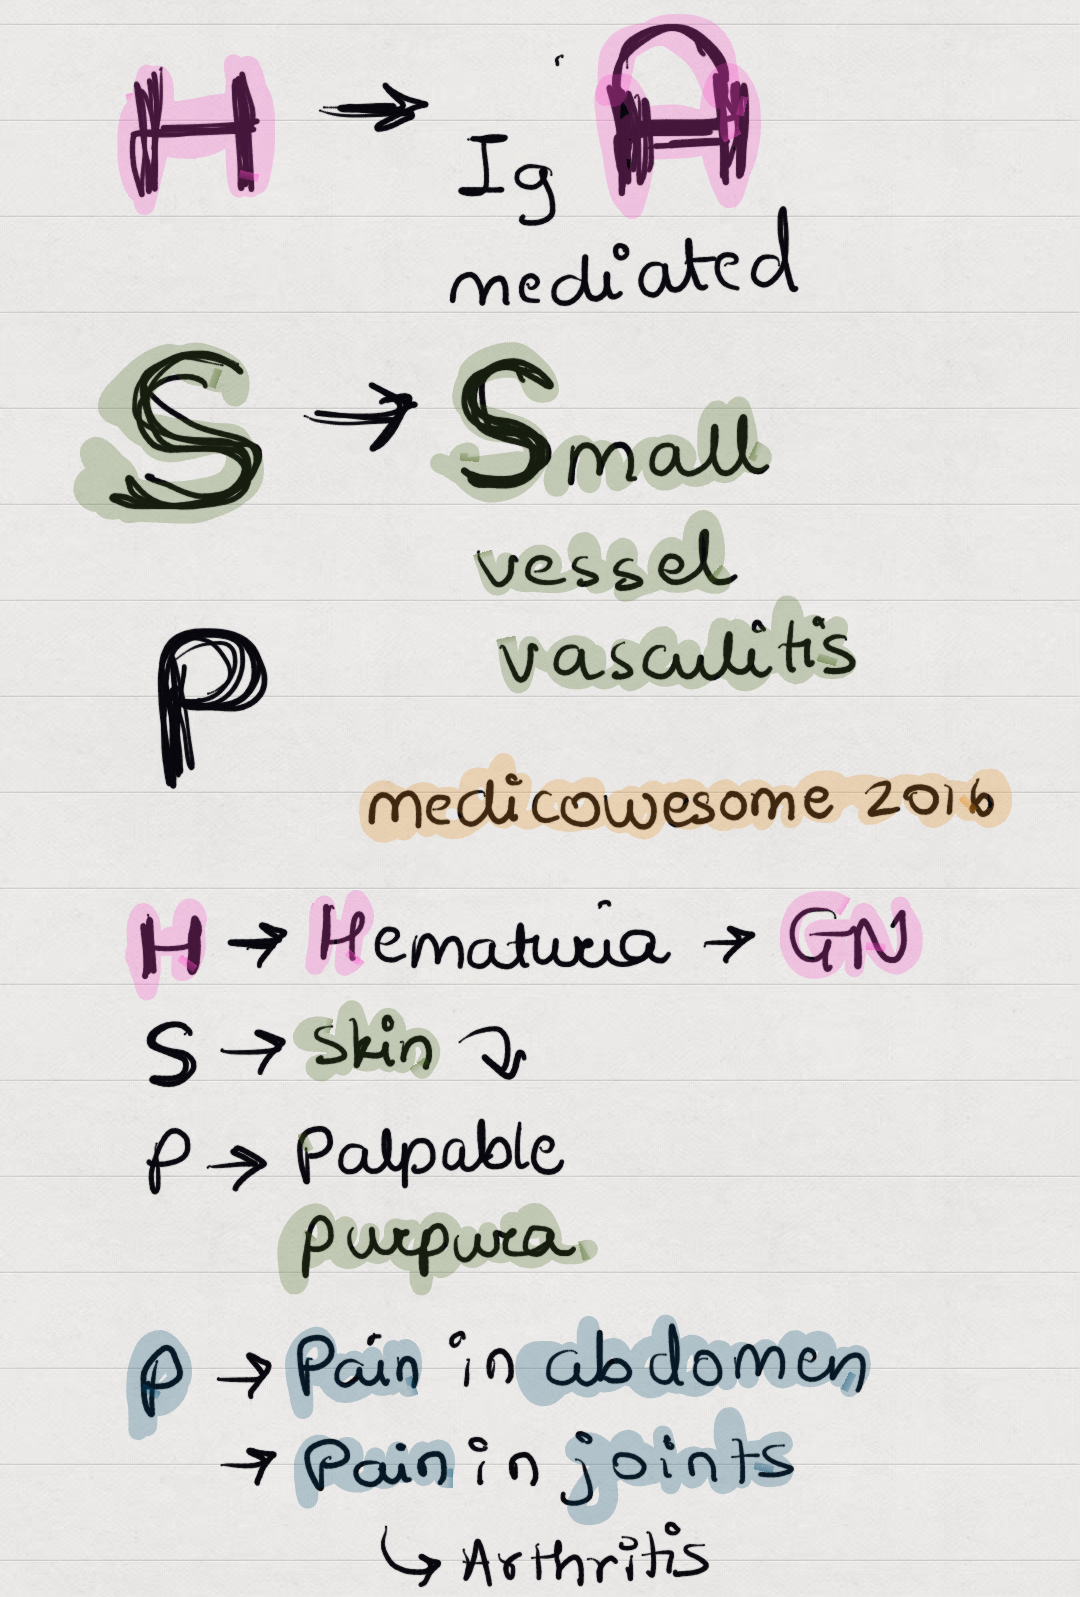 H → IgA
mediated
S → Small
vessel
vasculitis
P
medicowesome 2016
H → Hematuria → GN
S → Skin
P → Palpable
purpura
P → Pain in abdomen
→ Pain in joints
↳ Arthritis